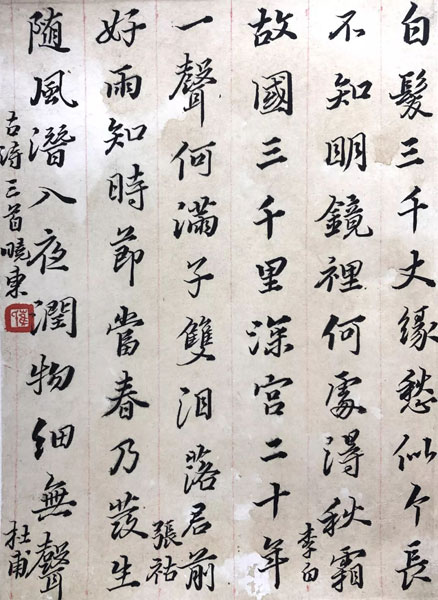 白髮三千丈緣愁似个長
不知明鏡裡何處得秋霜
李白
故國三千里深宮二十年
一聲何滿子雙泪落君前
張祜
好雨知時節當春乃發生
随風潛入夜潤物細無聲
杜甫
古詩三首曉東